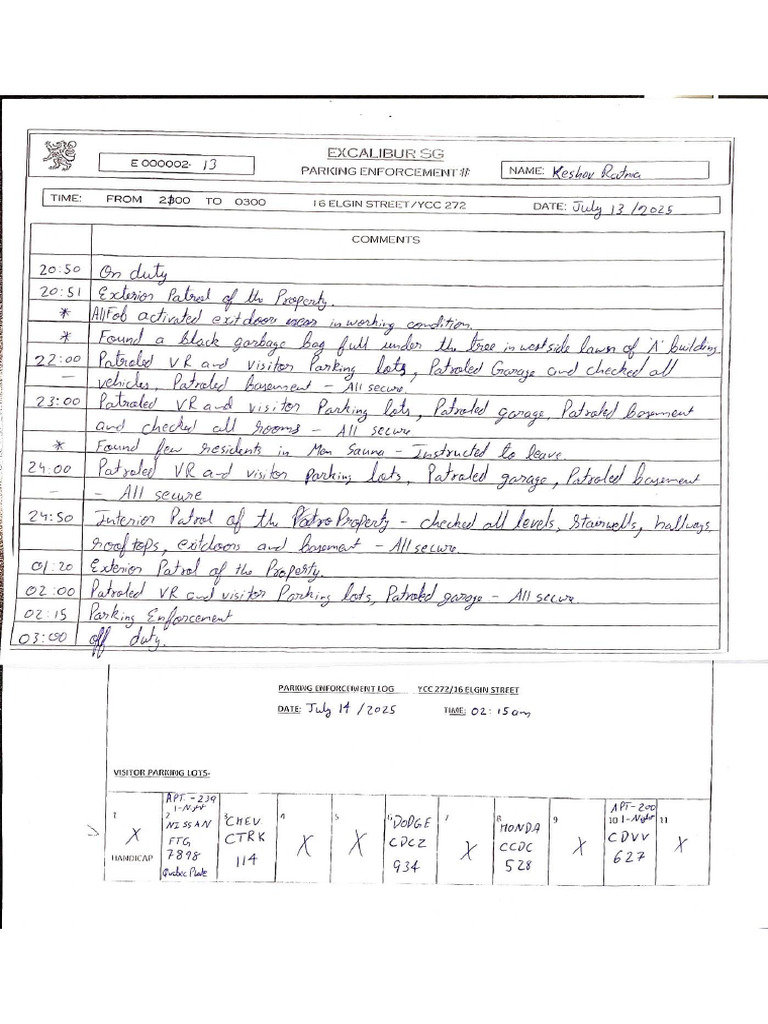 EXCALIBUR SG
E 000002- 13
PARKING ENFORCEMENT #
NAME: Keshav Ratna
TIME: FROM 2100 TO 0300 16 ELGIN STREET/YCC 272 DATE: July 13/2025
COMMENTS
20:50 On duty
20:51 Exterior Patrol of the Property.
* All Fob activated exit doors in working condition.
* Found a black garbage bag full under the tree in westside lawn of 'A' building.
22:00 Patroled VR and visitor Parking lots, Patroled Garage and checked all
- vehicles, Patroled Basement - All secure.
23:00 Patroled VR and visitor Parking lots, Patroled garage, Patroled basement
and checked all rooms - All secure
* Found few residents in Men Sauna - Instructed to leave
24:00 Patroled VR and visitor parking lots, Patroled garage, Patroled basement
- - All secure
24:50 Interior Patrol of the Property - checked all levels, stairwells, hallways,
rooftops, exitdoors and basement - All secure.
01:20 Exterior Patrol of the Property.
02:00 Patroled VR and visitor Parking lots, Patroled garage - All secure.
02:15 Parking Enforcement
03:00 off duty.
PARKING ENFORCEMENT LOG YCC 272/16 ELGIN STREET
DATE: July 14/2025 TIME: 02:15am
VISITOR PARKING LOTS-
1 X HANDICAP
APT.-239 1-Night 2 NISSAN FTG 7898 Quebec Plate
3 CHEV CTRK 114
4 X
5 X
6 DODGE CDCZ 934
7 X
8 HONDA CCDC 528
9 X
APT-200 10 1-Night CDVV 627
11 X